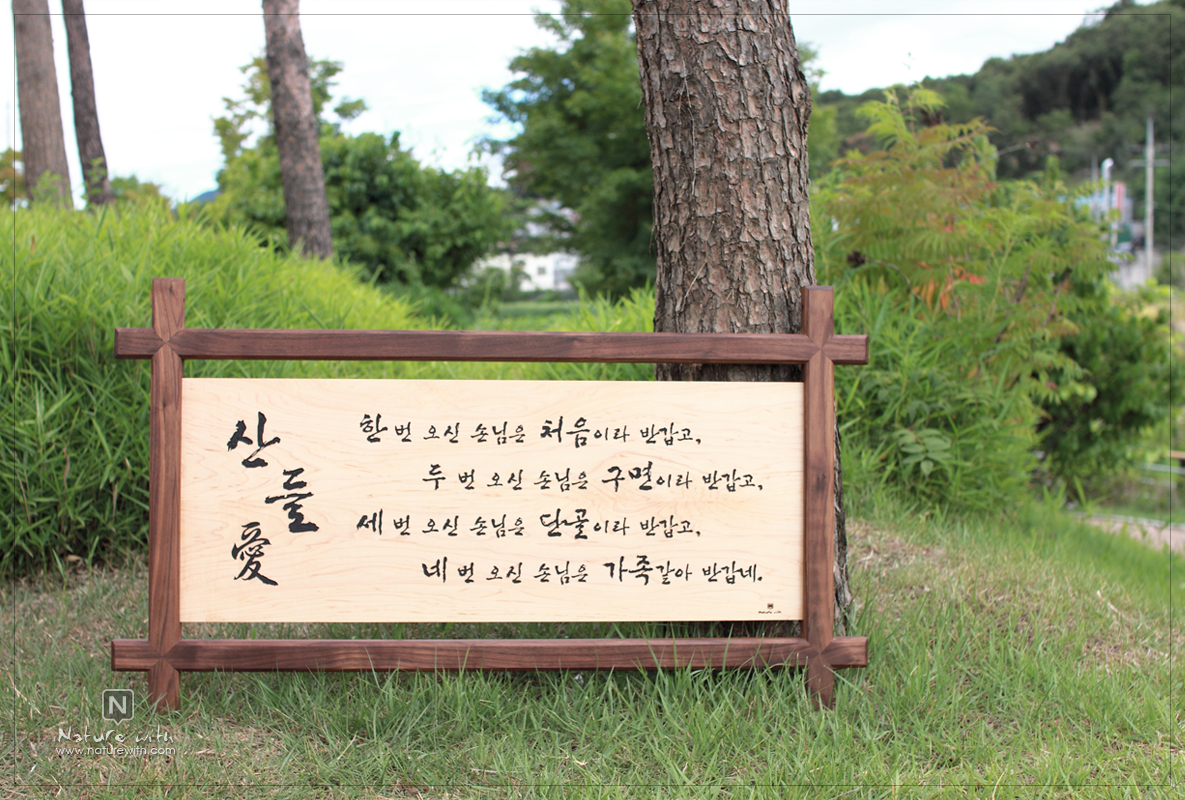 산들愛
한 번 오신 손님은 처음이라 반갑고,
두 번 오신 손님은 구면이라 반갑고,
세 번 오신 손님은 단골이라 반갑고,
네 번 오신 손님은 가족같아 반갑네.
Nature with
N
Nature with
www.naturewith.com